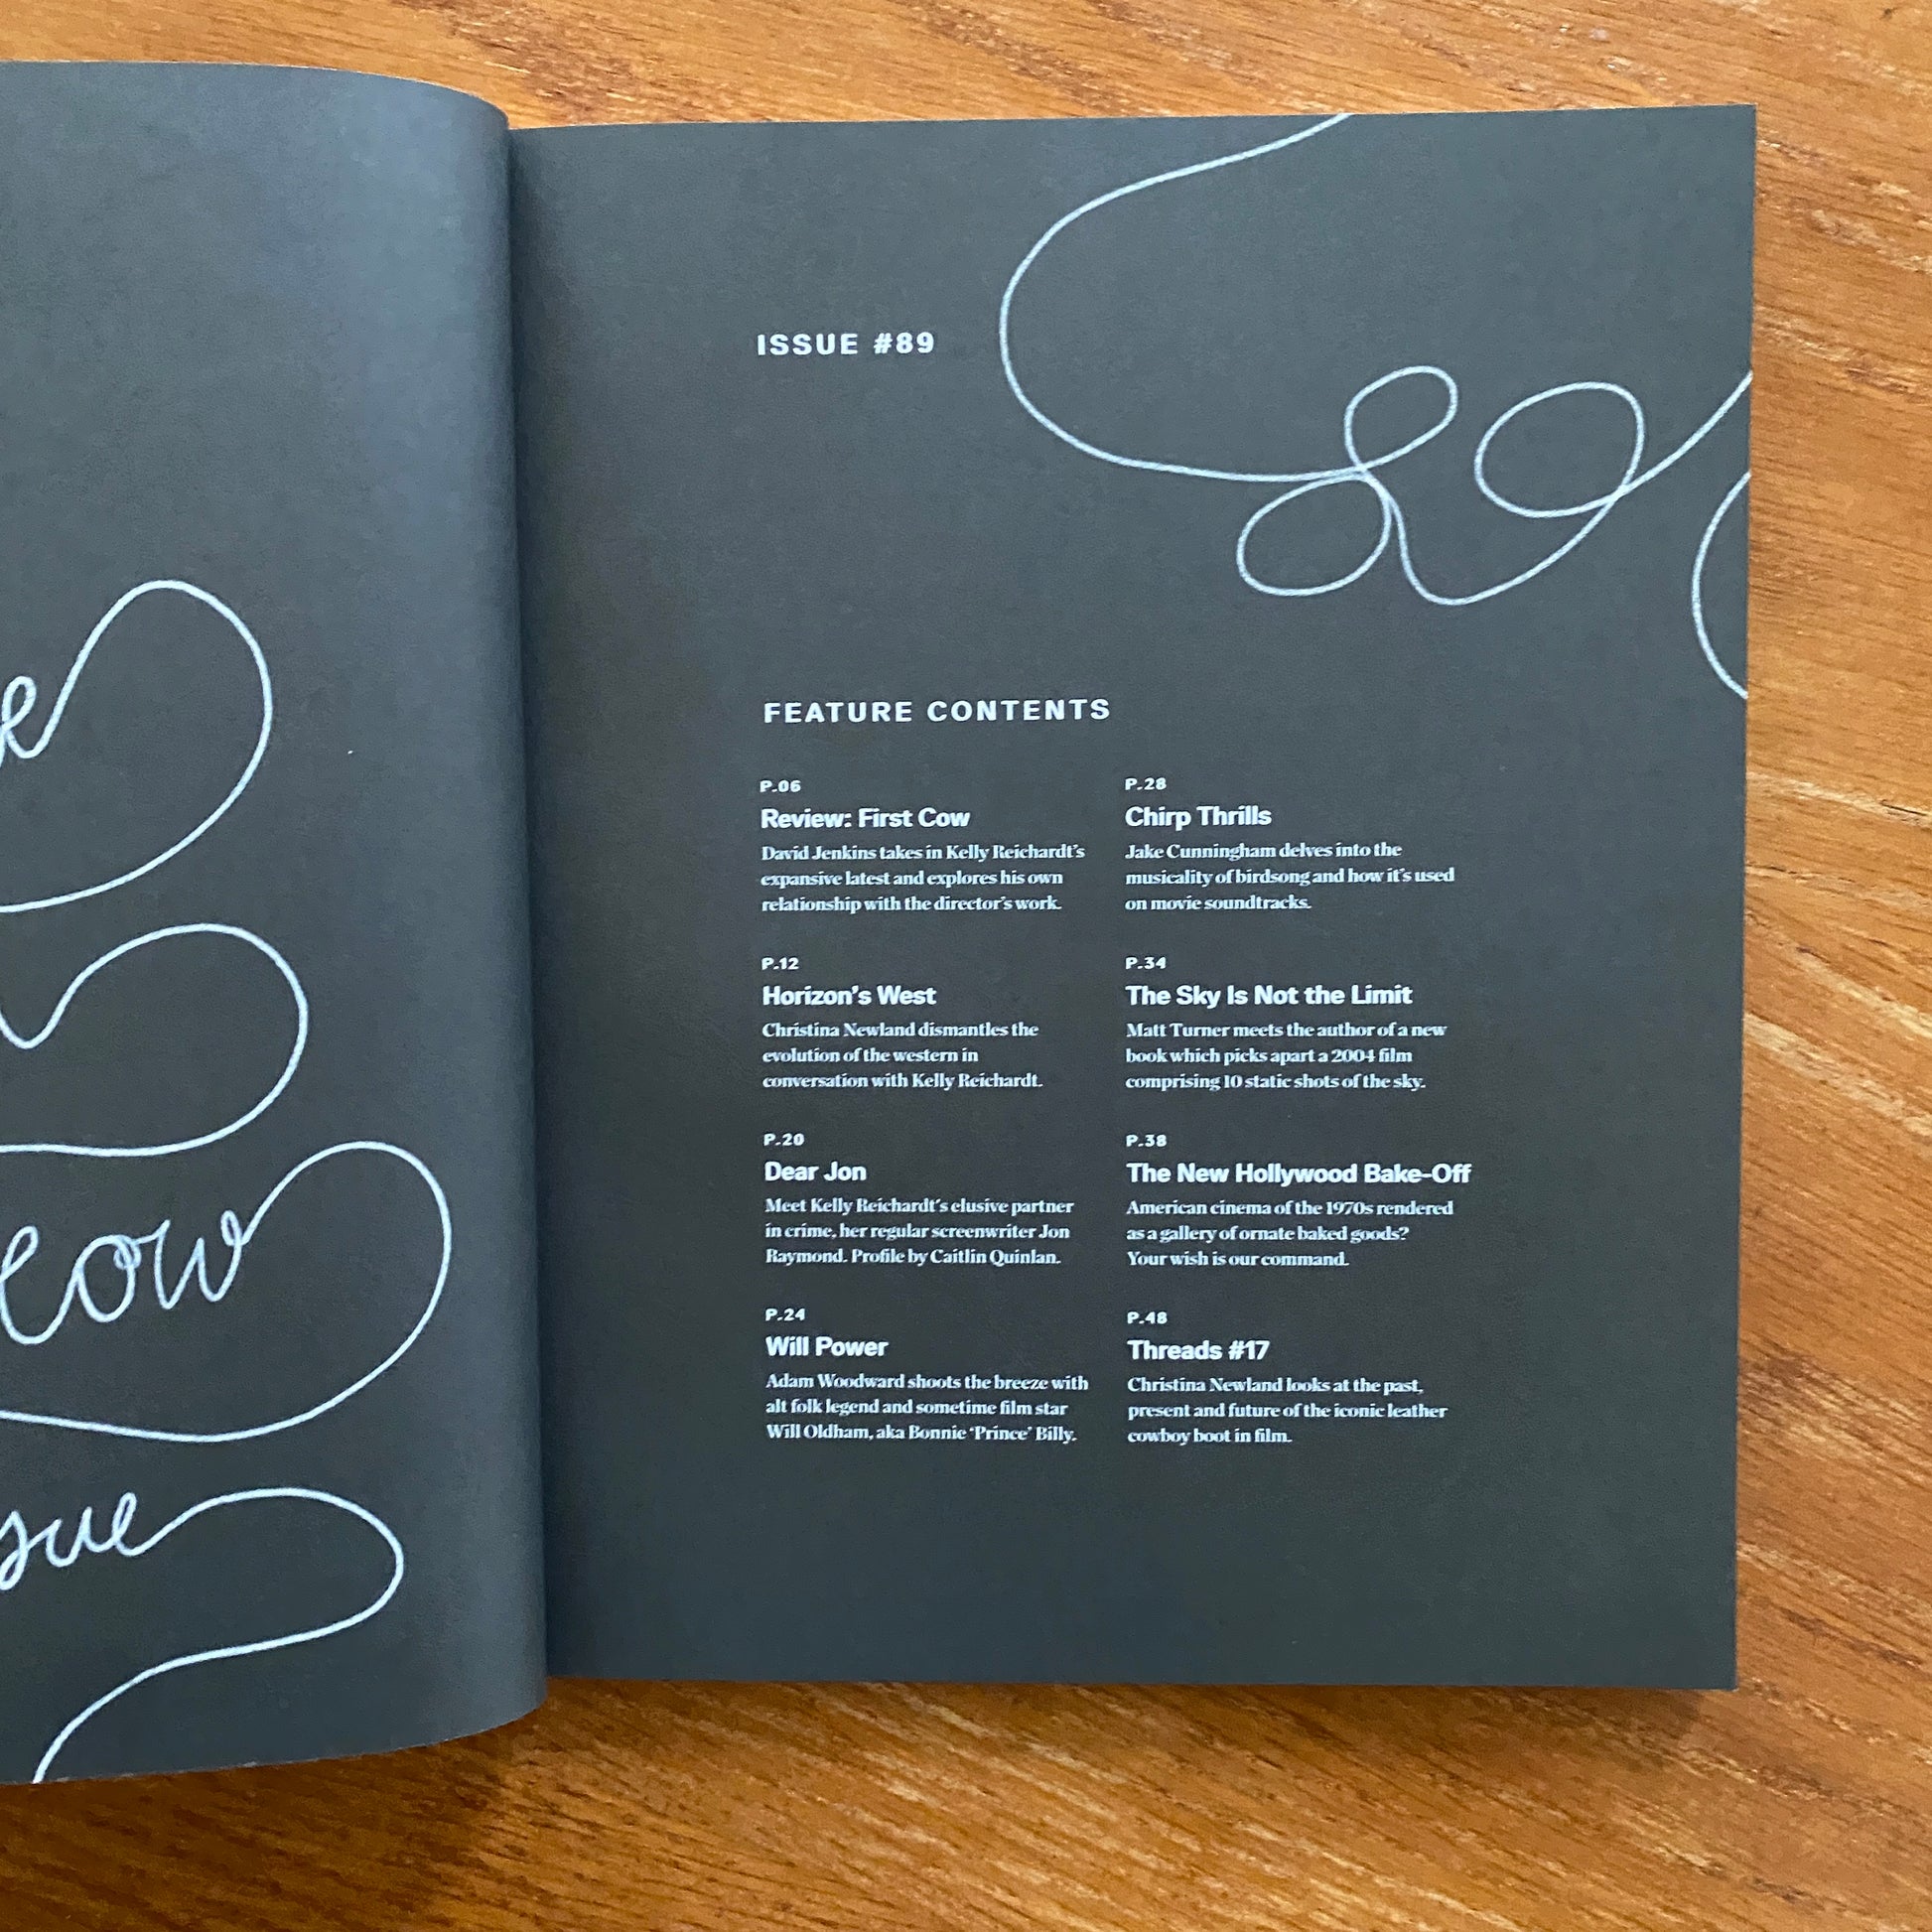 cow
ISSUE #89
89
FEATURE CONTENTS
P.06
Review: First Cow
David Jenkins takes in Kelly Reichardt's
expansive latest and explores his own
relationship with the director's work.
P.12
Horizon's West
Christina Newland dismantles the
evolution of the western in
conversation with Kelly Reichardt.
P.20
Dear Jon
Meet Kelly Reichardt's elusive partner
in crime, her regular screenwriter Jon
Raymond. Profile by Caitlin Quinlan.
P.24
Will Power
Adam Woodward shoots the breeze with
alt folk legend and sometime film star
Will Oldham, aka Bonnie ‘Prince’ Billy.
P.28
Chirp Thrills
Jake Cunningham delves into the
musicality of birdsong and how it's used
on movie soundtracks.
P.34
The Sky Is Not the Limit
Matt Turner meets the author of a new
book which picks apart a 2004 film
comprising 10 static shots of the sky.
P.38
The New Hollywood Bake-Off
American cinema of the 1970s rendered
as a gallery of ornate baked goods?
Your wish is our command.
P.48
Threads #17
Christina Newland looks at the past,
present and future of the iconic leather
cowboy boot in film.